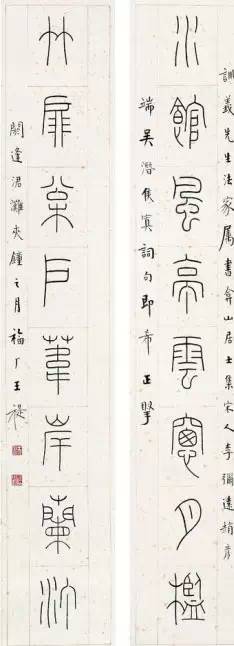 訓義先生法家屬書弇山居士集宋人李彌遠趙彥
水館風亭雲窗月檻
端吳潛侯寘詞句即希正擘
竹扉松戶葦岸蘭汀
閼逢涒灘夾鐘之月福厂王禔